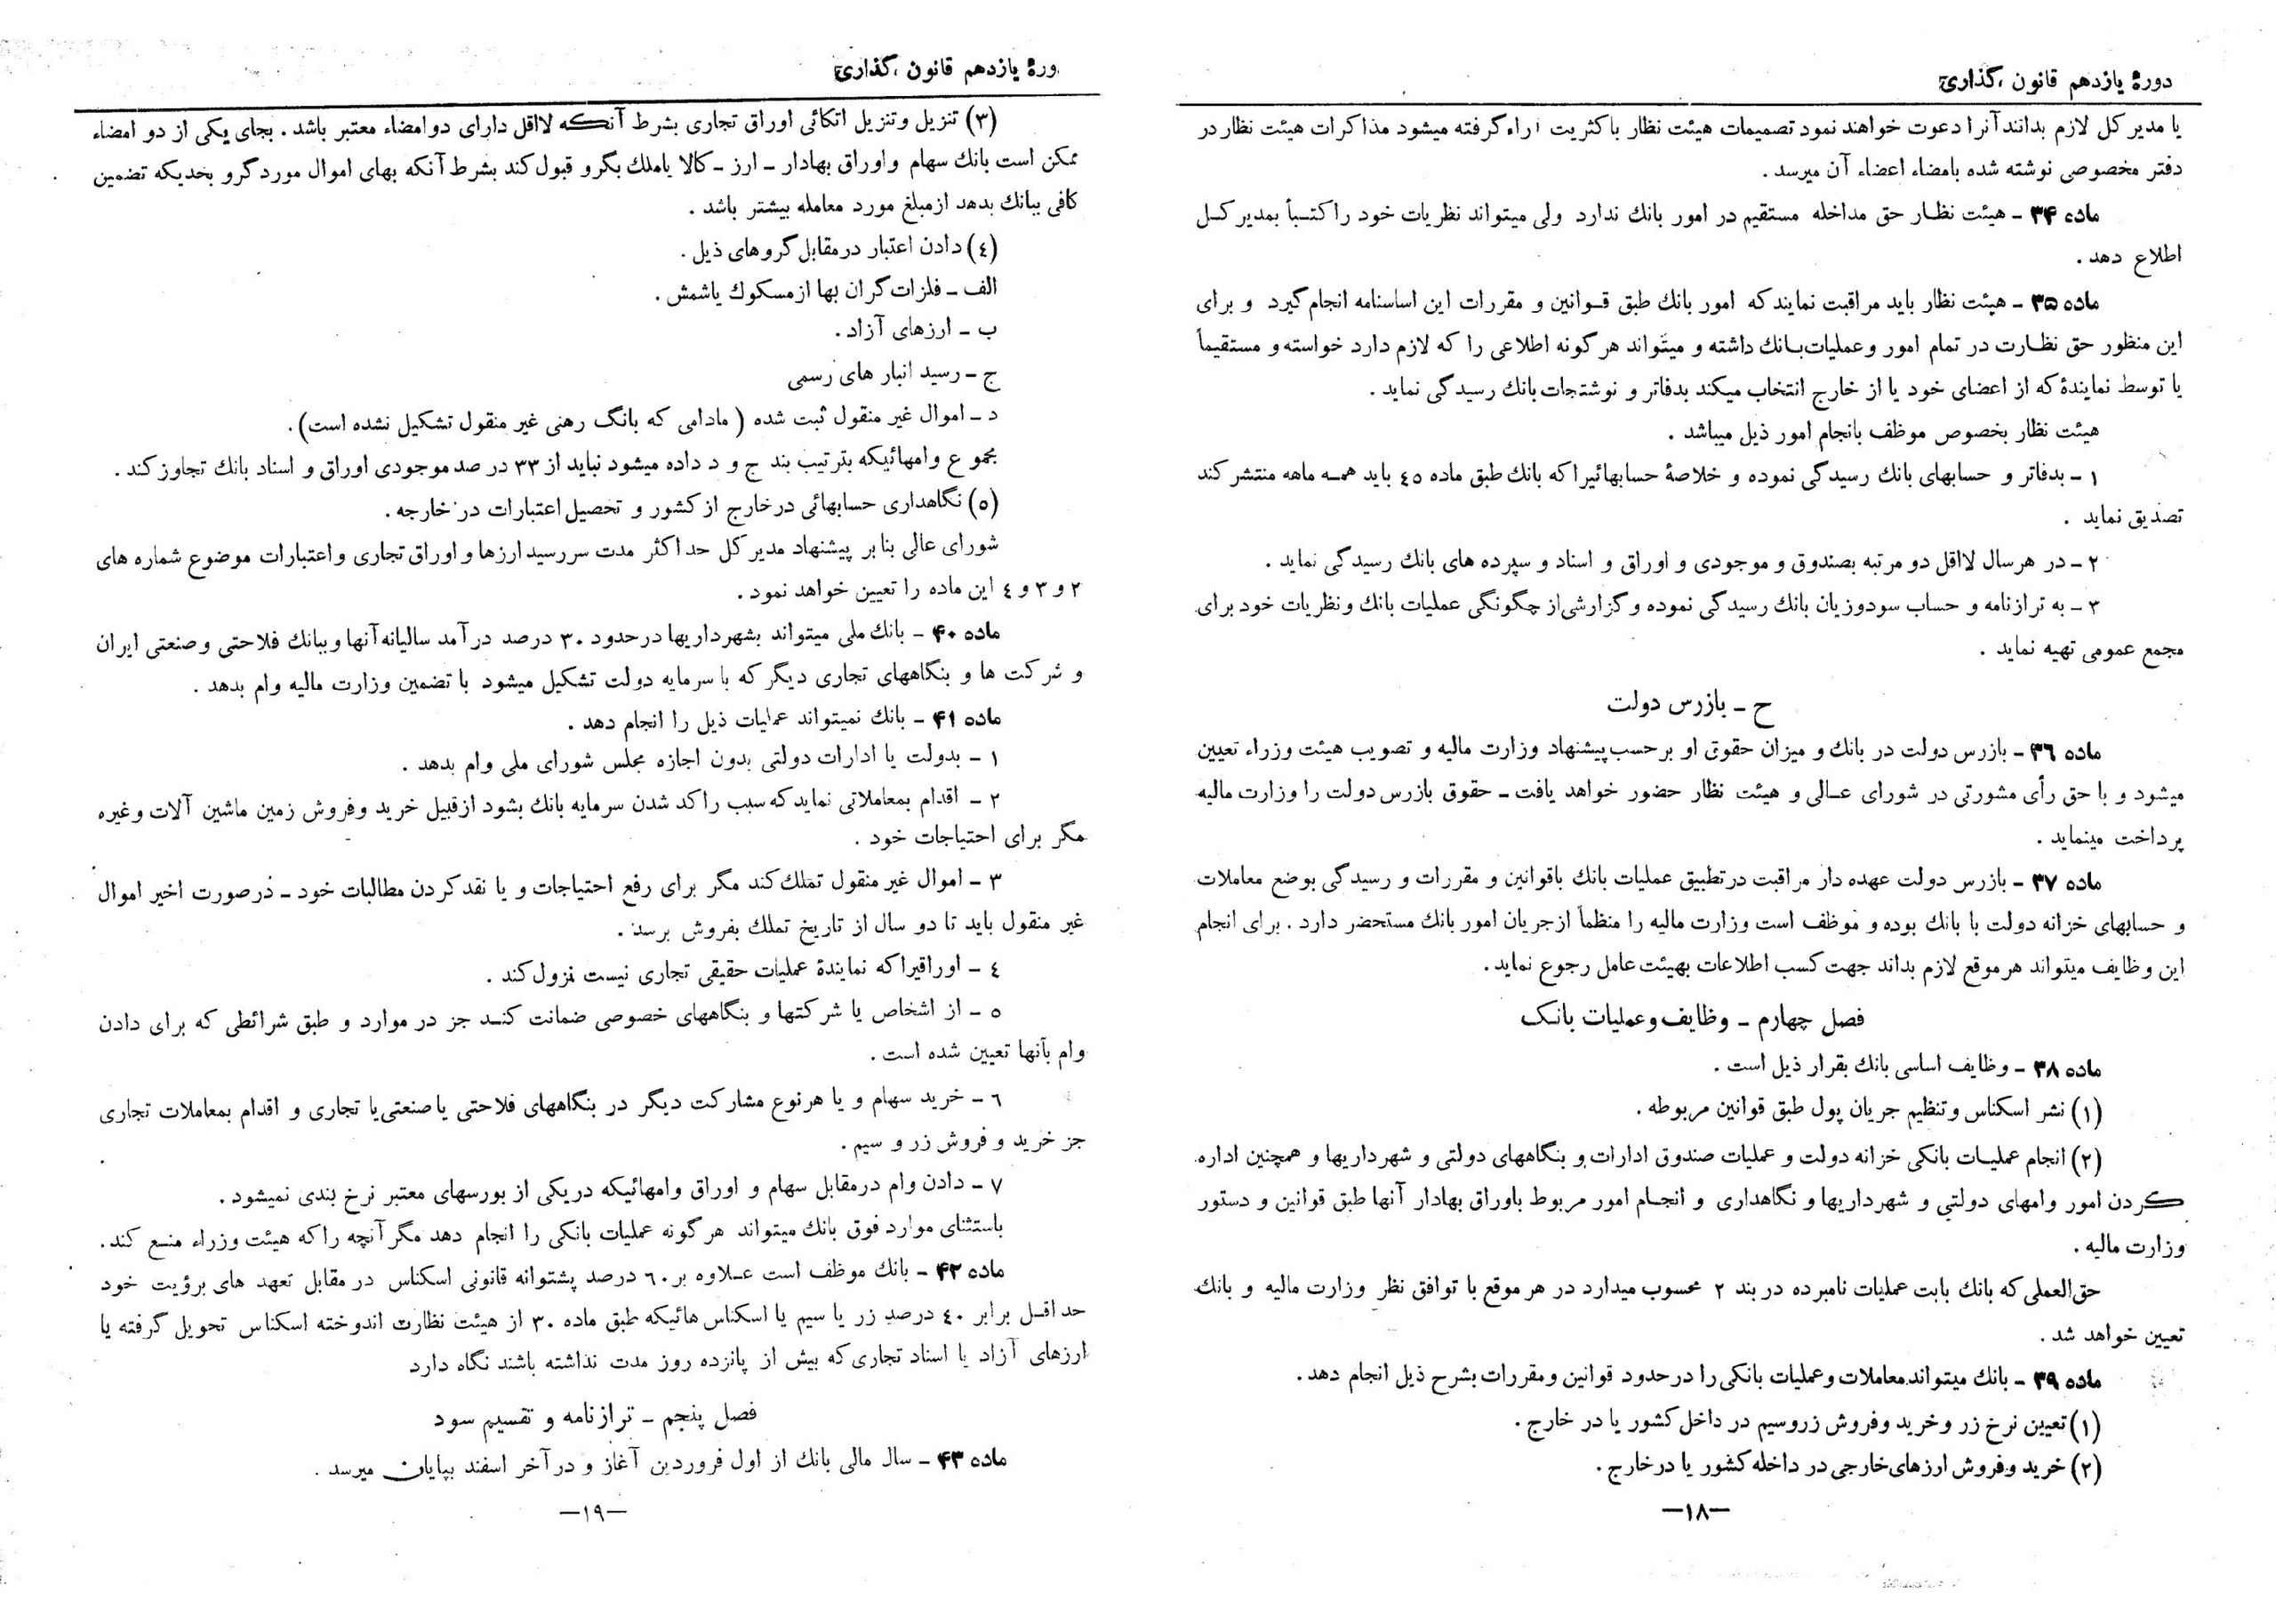 دورهٔ یازدهم قانون گذاری
یا مدیر کل لازم بدانند آنرا دعوت خواهند نمود تصمیمات هیئت نظار باکثریت آراء گرفته میشود مذاکرات هیئت نظار در
دفتر مخصوصی نوشته شده بامضاء اعضاء آن میرسد .
ماده ۳۴ ـ هیئت نظار حق مداخله مستقیم در امور بانك ندارد ولی میتواند نظریات خود را کتباً بمدیر کل
اطلاع دهد .
ماده ۳۵ ـ هیئت نظار باید مراقبت نماید که امور بانك طبق قوانین و مقررات این اساسنامه انجام گیرد و برای
این منظور حق نظارت در تمام امور و عملیات بانك داشته و میتواند هر گونه اطلاعی را که لازم دارد خواسته و مستقیماً
یا توسط نمایندهٔ که از اعضای خود یا از خارج انتخاب میکند بدفاتر و نوشتجات بانك رسیدگی نماید .
هیئت نظار بخصوص موظف بانجام امور ذیل میباشد .
۱ ـ بدفاتر و حسابهای بانك رسیدگی نموده و خلاصهٔ حسابهائیرا که بانك طبق ماده ٤٥ باید همه ماهه منتشر کند
تصدیق نماید .
۲ ـ در هر سال لااقل دو مرتبه بصندوق و موجودی و اوراق و اسناد و سپرده های بانك رسیدگی نماید .
۳ ـ به ترازنامه و حساب سود و زیان بانك رسیدگی نموده و گزارشی از چگونگی عملیات بانك و نظریات خود برای
مجمع عمومی تهیه نماید .
ح ـ بازرس دولت
ماده ۳۶ ـ بازرس دولت در بانك و میزان حقوق او بر حسب پیشنهاد وزارت مالیه و تصویب هیئت وزراء تعیین
میشود و با حق رأی مشورتی در شورای عالی و هیئت نظار حضور خواهد یافت ـ حقوق بازرس دولت را وزارت مالیه
پرداخت مینماید .
ماده ۳۷ ـ بازرس دولت عهده دار مراقبت در تطبیق عملیات بانك باقوانین و مقررات و رسیدگی بوضع معاملات
و حسابهای خزانه دولت با بانك بوده و موظف است وزارت مالیه را منظماً از جریان امور بانك مستحضر دارد . برای انجام
این وظایف میتواند هر موقع لازم بداند جهت کسب اطلاعات بهیئت عامل رجوع نماید .
فصل چهارم ـ وظایف و عملیات بانک
ماده ۳۸ ـ وظایف اساسی بانك بقرار ذیل است .
(۱) نشر اسکناس و تنظیم جریان پول طبق قوانین مربوطه .
(۲) انجام عملیات بانکی خزانه دولت و عملیات صندوق ادارات و بنگاههای دولتی و شهرداریها و همچنین اداره
کردن امور وامهای دولتی و شهرداریها و نگاهداری و انجام امور مربوط باوراق بهادار آنها طبق قوانین و دستور
وزارت مالیه .
حق‌العملی که بانك بابت عملیات نامبرده در بند ۲ محسوب میدارد در هر موقع با توافق نظر وزارت مالیه و بانك
تعیین خواهد شد .
ماده ۳۹ ـ بانك میتواند معاملات و عملیات بانکی را در حدود قوانین و مقررات بشرح ذیل انجام دهد .
(۱) تعیین نرخ زر و خرید و فروش زر و سیم در داخل کشور یا در خارج .
(۲) خرید و فروش ارزهای خارجی در داخله کشور یا در خارج .
—۱۸—
دورهٔ یازدهم قانون گذاری
(۳) تنزیل و تنزیل اتکائی اوراق تجاری بشرط آنکه لااقل دارای دو امضاء معتبر باشد . بجای یکی از دو امضاء
ممکن است بانك سهام و اوراق بهادار ـ ارز ـ کالا یا ملك بگرو قبول کند بشرط آنکه بهای اموال مورد گرو بحدیکه تضمین
کافی ببانك بدهد از مبلغ مورد معامله بیشتر باشد .
(٤) دادن اعتبار در مقابل گروهای ذیل .
الف ـ فلزات گران بها از مسکوك یا شمش .
ب ـ ارزهای آزاد .
ج ـ رسید انبار های رسمی
د ـ اموال غیر منقول ثبت شده ( مادامی که بانگ رهنی غیر منقول تشکیل نشده است) .
مجموع وامهائیکه بترتیب بند ج و د داده میشود نباید از ۳۳ در صد موجودی اوراق و اسناد بانك تجاوز کند .
(٥) نگاهداری حسابهائی در خارج از کشور و تحصیل اعتبارات در خارجه .
شورای عالی بنا بر پیشنهاد مدیر کل حد اکثر مدت سررسید ارزها و اوراق تجاری و اعتبارات موضوع شماره های
۲ و ۳ و ٤ این ماده را تعیین خواهد نمود .
ماده ۴۰ ـ بانك ملی میتواند بشهرداریها در حدود ۳۰ درصد درآمد سالیانه آنها و ببانك فلاحتی و صنعتی ایران
و شرکت ها و بنگاههای تجاری دیگر که با سرمایه دولت تشکیل میشود با تضمین وزارت مالیه وام بدهد .
ماده ۴۱ ـ بانك نمیتواند عملیات ذیل را انجام دهد .
۱ ـ بدولت یا ادارات دولتی بدون اجازه مجلس شورای ملی وام بدهد .
۲ ـ اقدام بمعاملاتی نماید که سبب راکد شدن سرمایه بانك بشود از قبیل خرید و فروش زمین ماشین آلات و غیره
مگر برای احتیاجات خود .
۳ ـ اموال غیر منقول تملك کند مگر برای رفع احتیاجات و یا نقد کردن مطالبات خود ـ در صورت اخیر اموال
غیر منقول باید تا دو سال از تاریخ تملك بفروش برسد .
٤ ـ اوراقیرا که نمایندهٔ عملیات حقیقی تجاری نیست نزول کند .
٥ ـ از اشخاص یا شرکتها و بنگاههای خصوصی ضمانت کند جز در موارد و طبق شرائطی که برای دادن
وام بآنها تعیین شده است .
٦ ـ خرید سهام و یا هر نوع مشارکت دیگر در بنگاههای فلاحتی یا صنعتی یا تجاری و اقدام بمعاملات تجاری
جز خرید و فروش زر و سیم .
۷ ـ دادن وام در مقابل سهام و اوراق وامهائیکه در یکی از بورسهای معتبر نرخ بندی نمیشود .
باستثنای موارد فوق بانك میتواند هر گونه عملیات بانکی را انجام دهد مگر آنچه را که هیئت وزراء منع کند .
ماده ۴۲ ـ بانك موظف است علاوه بر ٦۰ درصد پشتوانه قانونی اسکناس در مقابل تعهد های برؤیت خود
حداقل برابر ٤۰ درصد زر یا سیم یا اسکناس هائیکه طبق ماده ۳۰ از هیئت نظارت اندوخته اسکناس تحویل گرفته یا
ارزهای آزاد یا اسناد تجاری که بیش از پانزده روز مدت نداشته باشند نگاه دارد
فصل پنجم ـ ترازنامه و تقسیم سود
ماده ۴۳ ـ سال مالی بانك از اول فروردین آغاز و در آخر اسفند بپایان میرسد .
—۱۹—